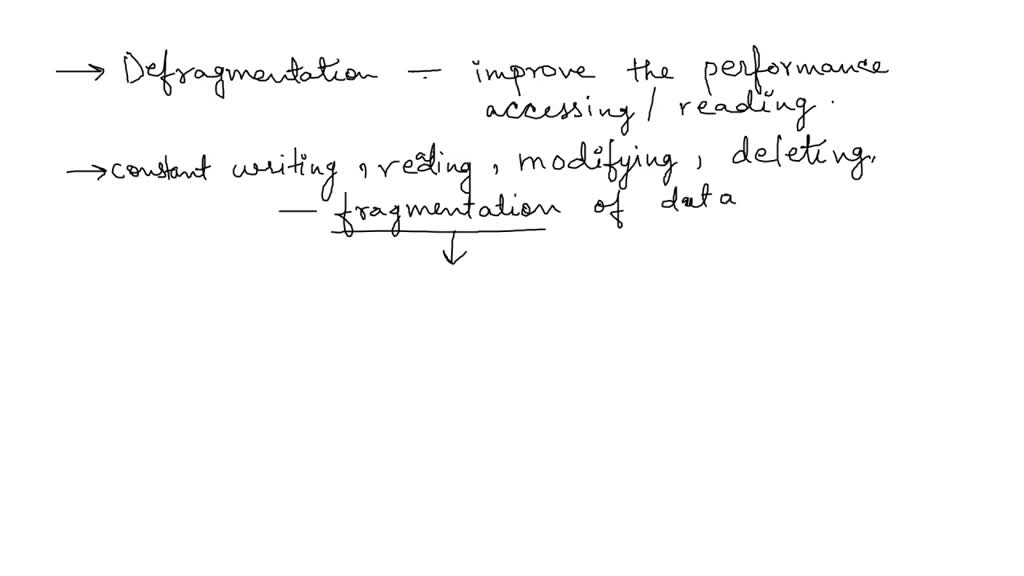 → Defragmentation - improve the performance
accessing / reading.
→ constant writing, reading, modifying, deleting,
- fragmentation of data
↓